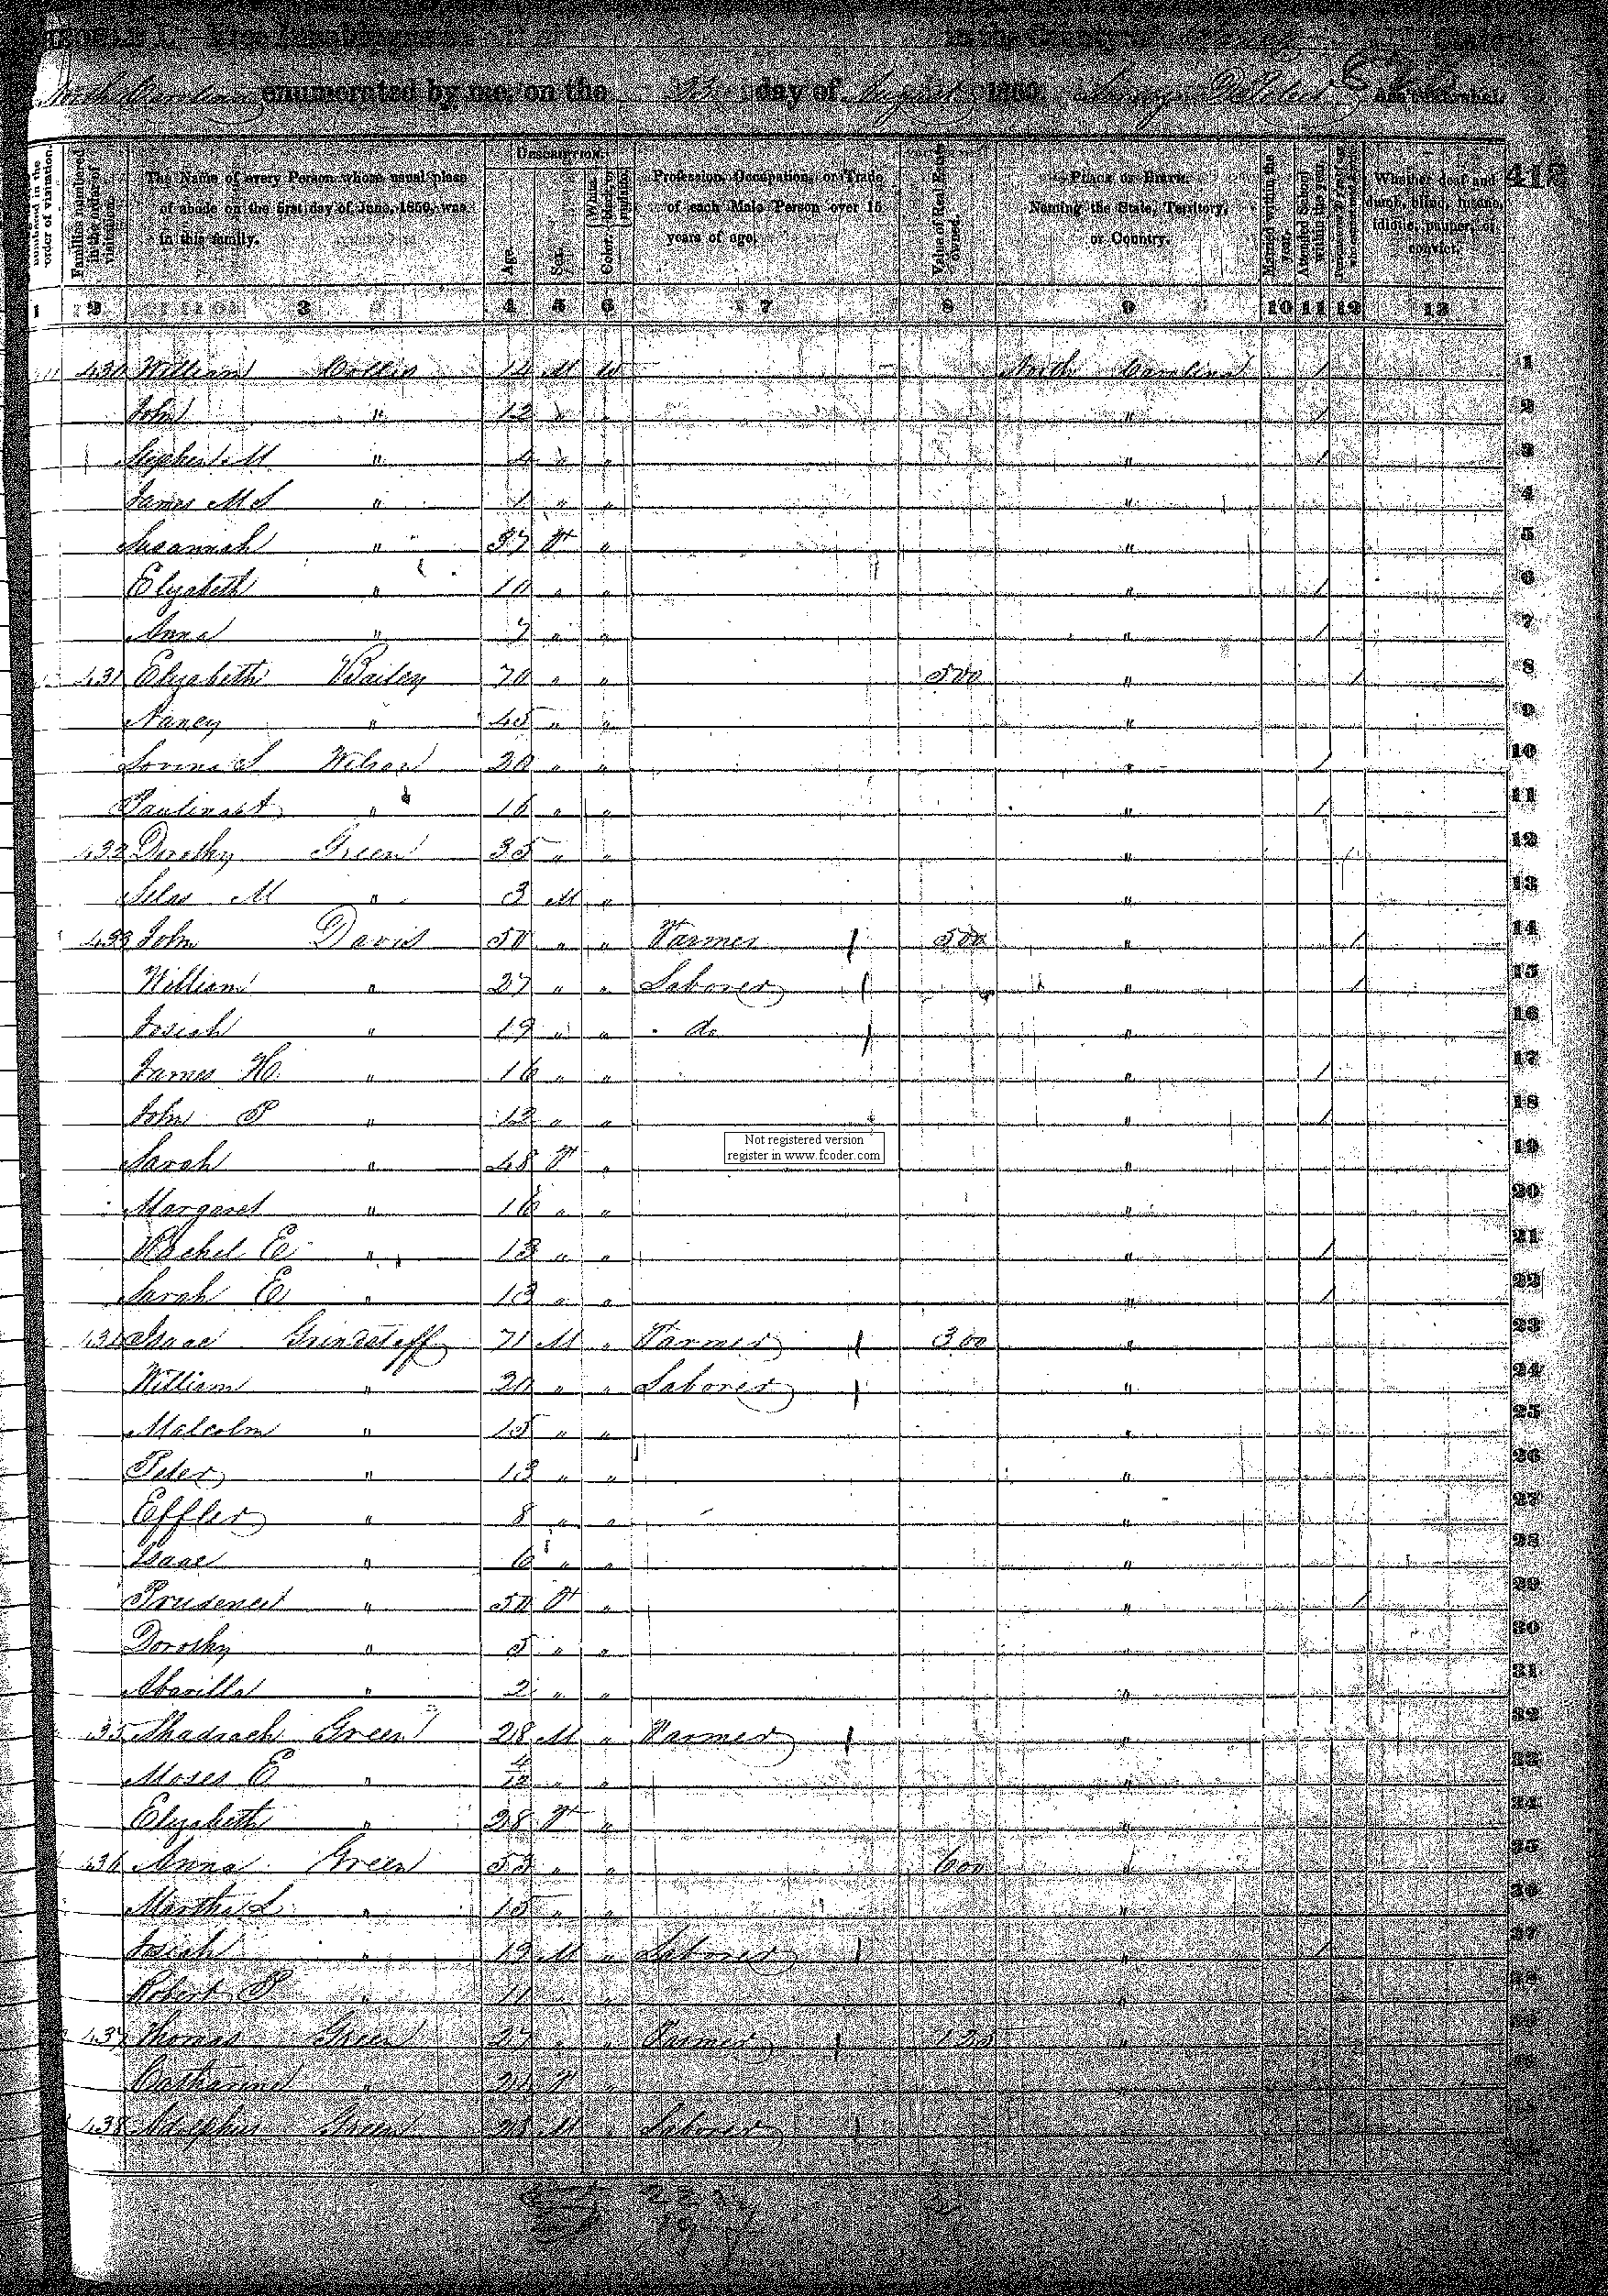 North Carolina enumerated by me, on the day of August 1850. Ass't Marshal.
Description.
The Name of every Person whose usual place of abode on the first day of June, 1850, was in this family.
Families numbered in the order of visitation.
Age.
Sex.
Color. White, black, or mulatto.
Profession, Occupation, or Trade of each Male Person over 15 years of age.
Value of Real Estate owned.
Place of Birth. Naming the State, Territory, or Country.
Married within the year.
Attended School within the year.
Whether deaf and dumb, blind, insane, idiotic, pauper, or convict.
1 2 3 4 5 6 7 8 9 10 11 12 13
430 William Collis 14 M W North Carolina / 1
John " 12 " " " / 2
Stephen M " 4 " " " / 3
James M S " 1 " " " 4
Susannah " 37 F " " 5
Elizabeth " 10 " " " / 6
Anna " 7 " " " / 7
431 Elizabeth Bailey 70 " " 500 " / 8
Nancy " 45 " " " 9
Wilson 20 " " " / 10
" 16 " " " / 11
432 Dorothy Green 35 " " " / 12
Silas M " 3 M " " 13
433 John Davis 50 " " Farmer 500 " / 14
William " 27 " " Laborer " / 15
Josiah " 19 " " do " 16
James H. " 16 " " " / 17
John P " 12 " " " / 18
Not registered version
register in www.fcoder.com
Sarah " 48 F " " 19
Margaret " 16 " " " 20
Rachel E " 13 " " " / 21
Sarah E " 13 " " " / 22
434 Isaac Grindstaff 71 M " Farmer 300 " 23
William " 20 " " Laborer " 24
Malcolm " 15 " " " 25
Peter " 13 " " " 26
Effler " 8 " " " 27
Isaac " 6 " " " 28
Prudence " 50 F " " / 29
Dorothy " 5 " " " 30
Abarilla " 2 " " " 31
435 Shadrach Green 28 M " Farmer " 32
Moses E " 4/12 " " " 33
Elizabeth " 28 F " " 34
436 Anna Green 53 " " 600 " 35
Martha L " 15 " " " 36
Josiah " 19 M " Laborer " / 37
Robert P " 11 " " " 38
437 Thomas Green 27 " " Farmer "
Catharine " F " "
438 Adolphus Green M " Laborer